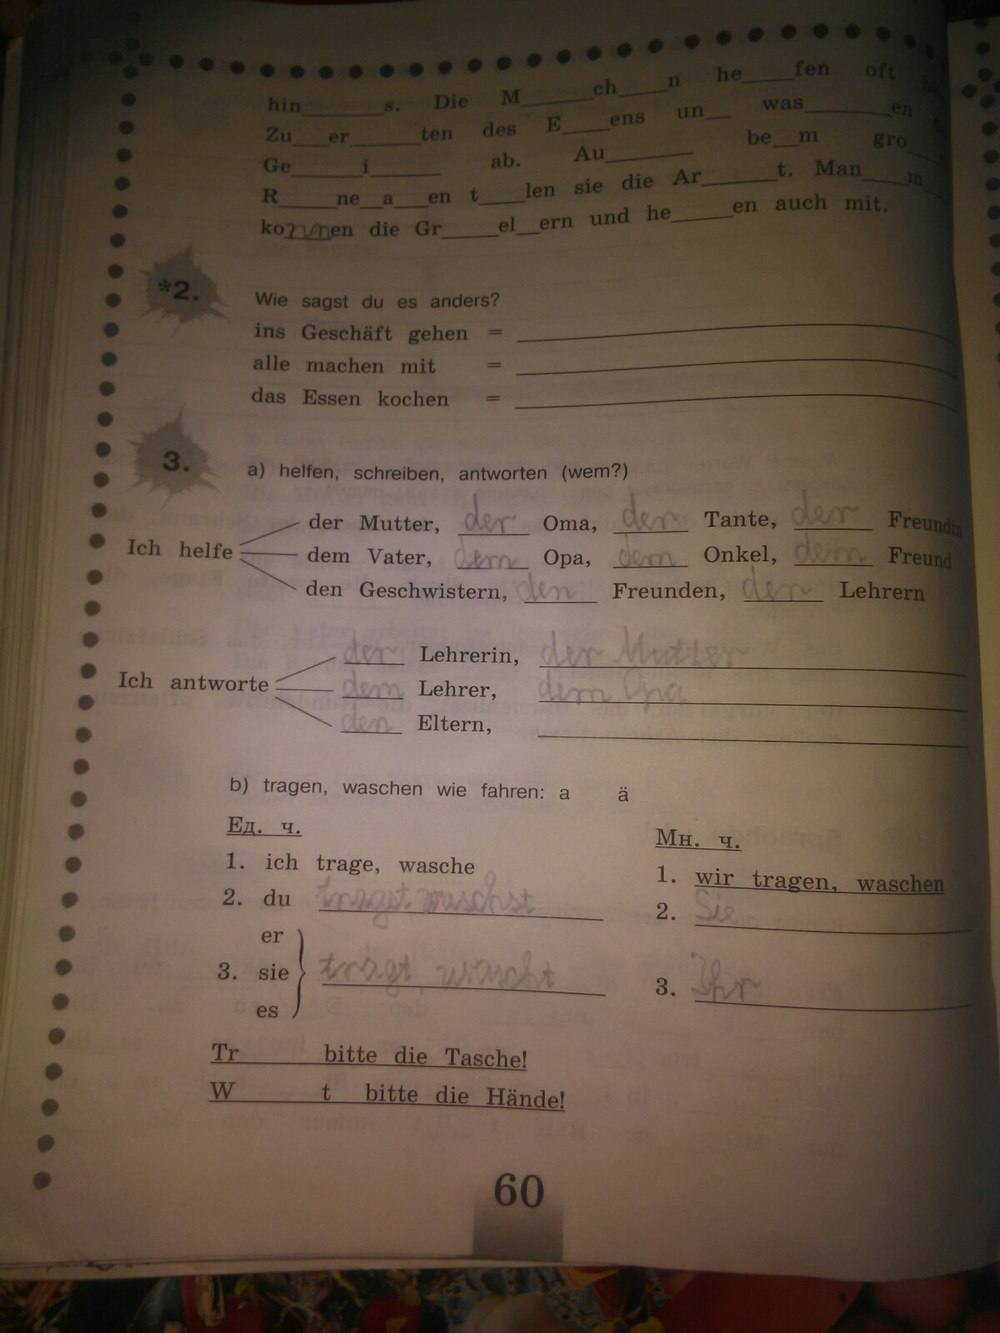 hin______s. Die M______ch____n he____fen oft
Zu___er______ten des E____ens un__ was_______en
Ge______i______ ab. Au_______ be__m gro
R_____ne__a___en t____len sie die Ar______t. Man____m
kommen die Gr_____el__ern und he_____en auch mit.
*2. Wie sagst du es anders?
ins Geschäft gehen = ____________
alle machen mit = ____________
das Essen kochen = ____________
3. a) helfen, schreiben, antworten (wem?)
der Mutter, der Oma, der Tante, der Freundin
Ich helfe dem Vater, dem Opa, dem Onkel, dem Freund
den Geschwistern, den Freunden, den Lehrern
der Lehrerin, der Mutter
Ich antworte dem Lehrer, dem Opa
den Eltern, ____________
b) tragen, waschen wie fahren: a ä
Ед. ч. Мн. ч.
1. ich trage, wasche 1. wir tragen, waschen
2. du 2. Sie
er
3. sie trägt, wascht 3. Ihr
es
Tr______ bitte die Tasche!
W______t bitte die Hände!
60